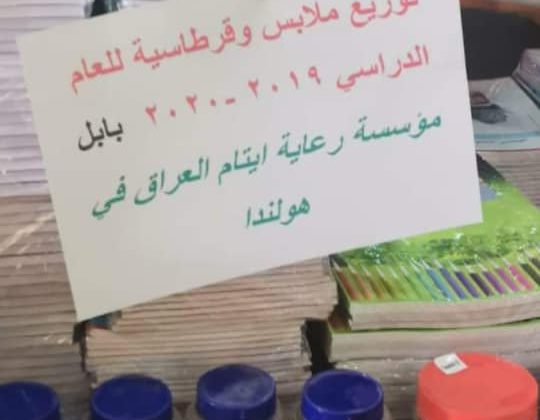 توزيع ملابس وقرطاسية للعام
الدراسي ٢٠١٩ -٢٠٢٠ بابل
مؤسسة رعاية ايتام العراق في
هولندا